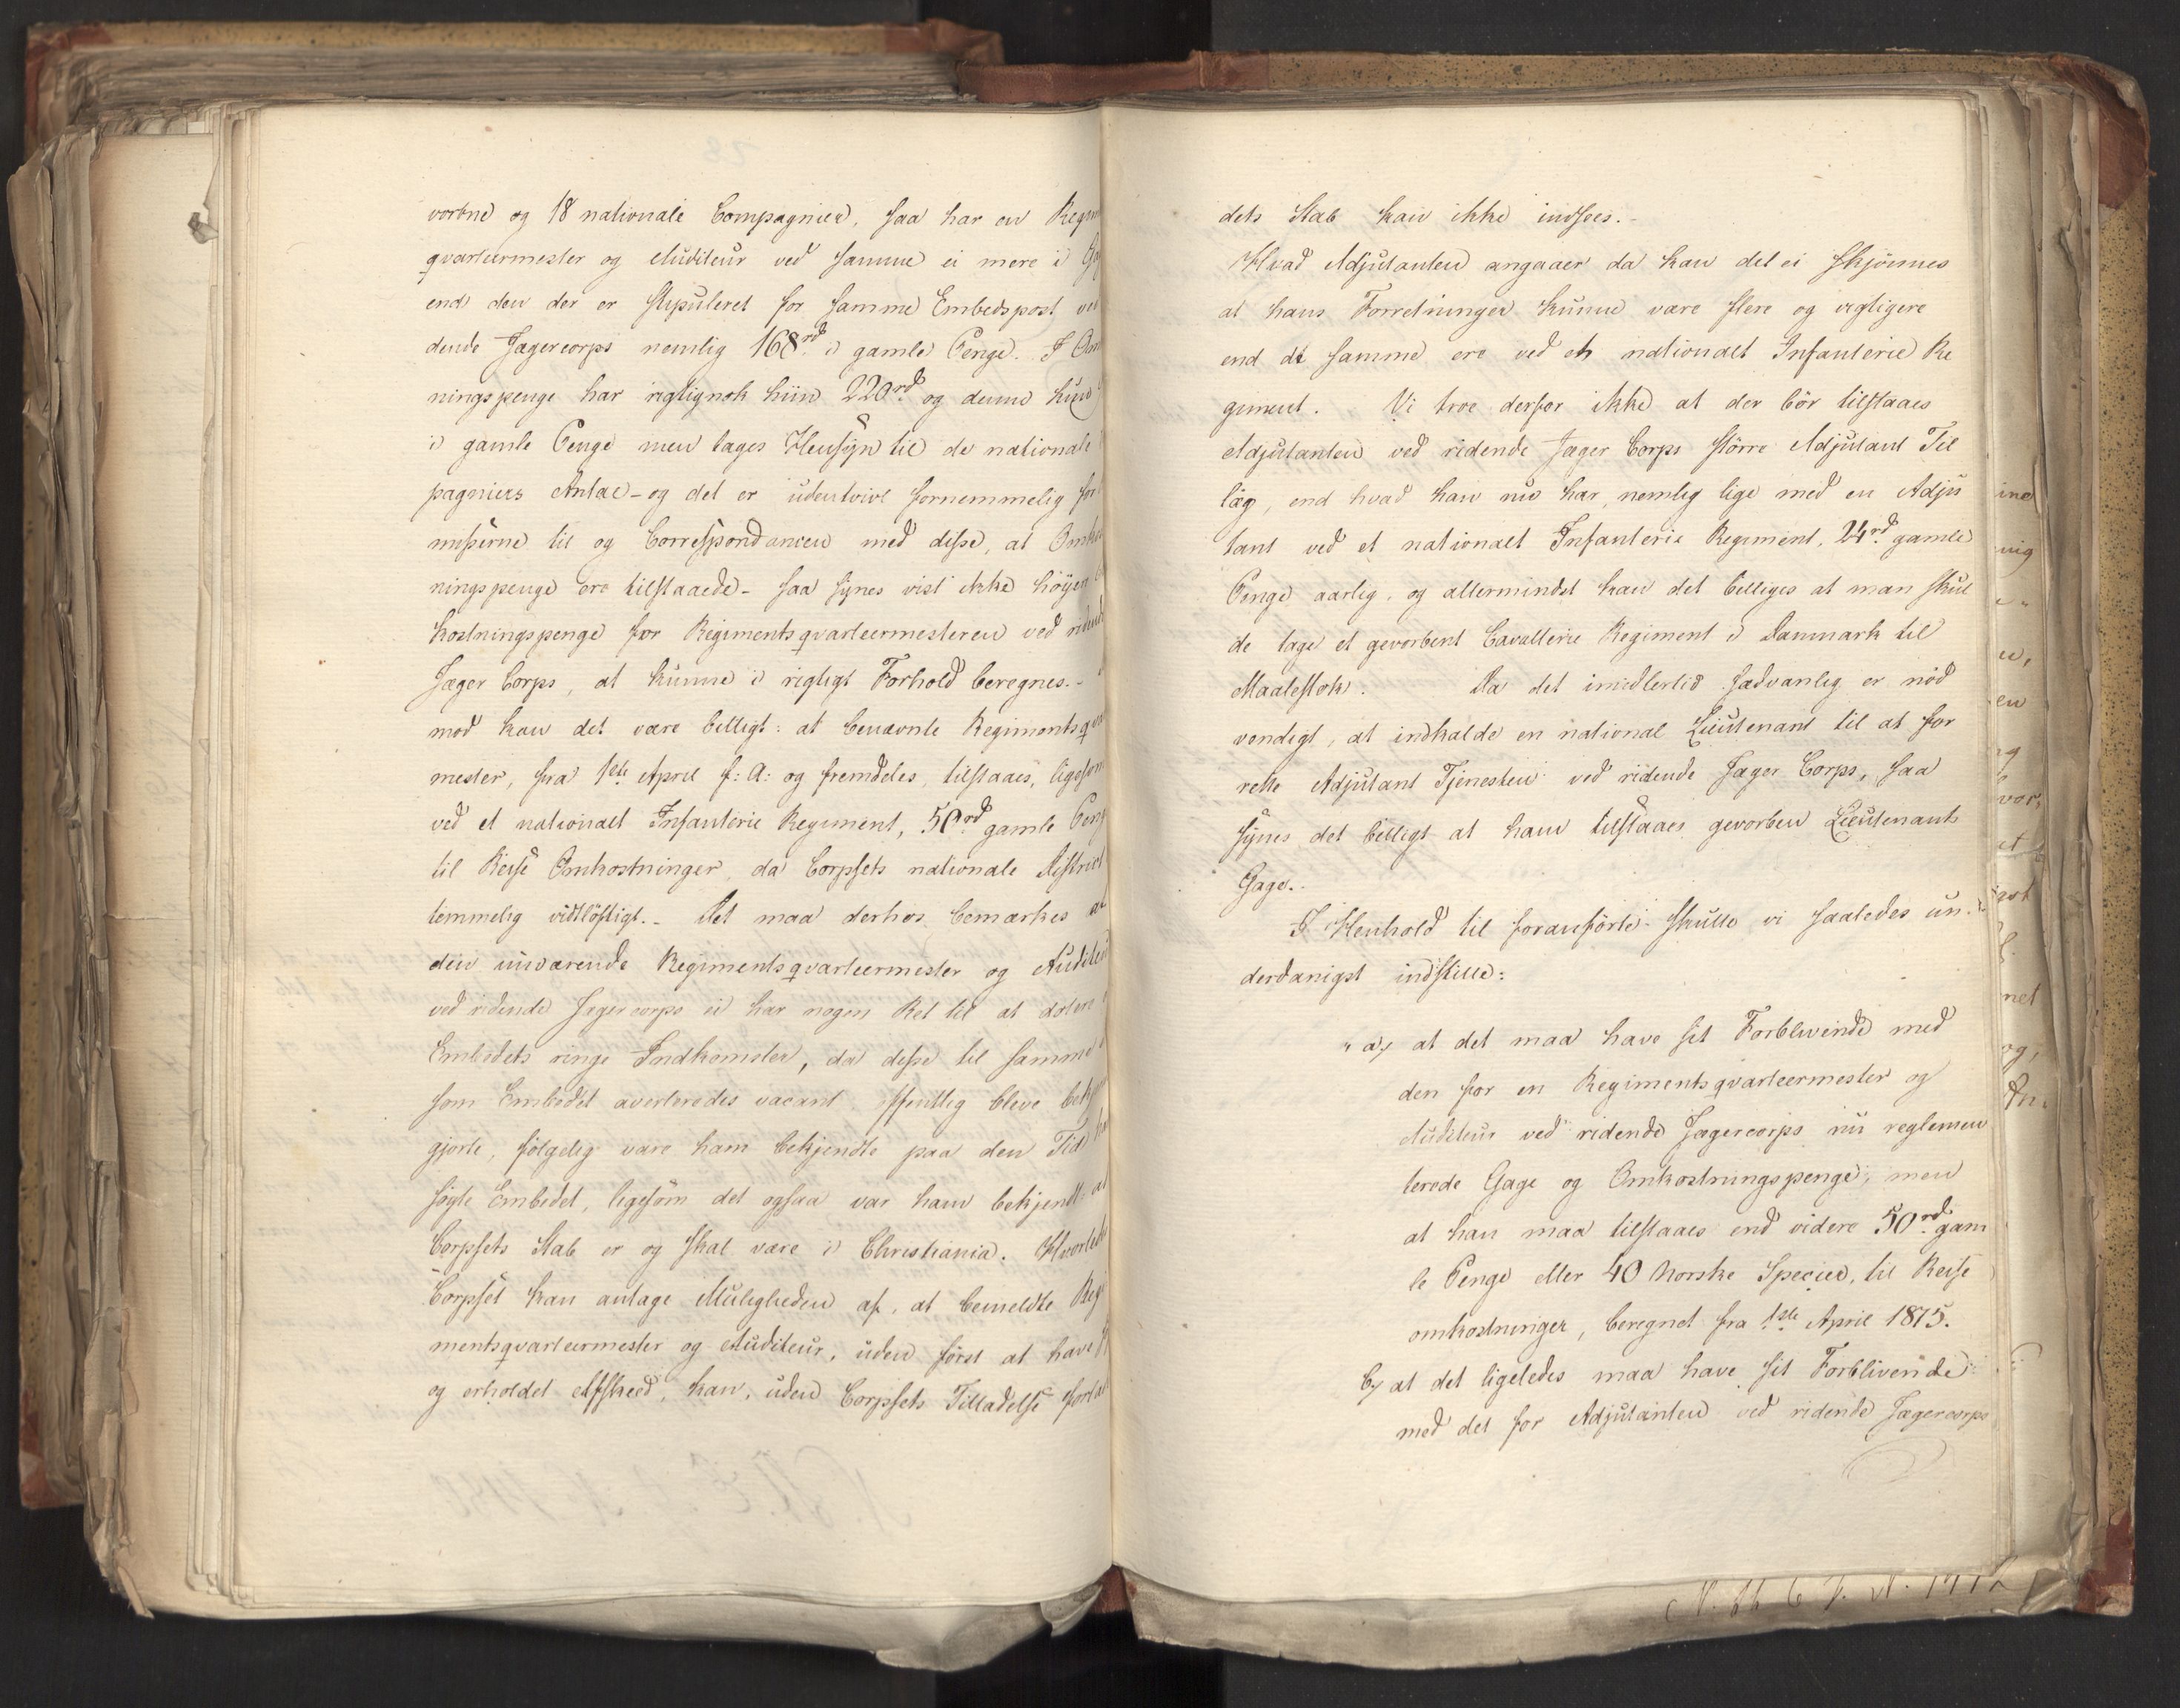 vorbne og 18 nationale Compagnier, saa har en Regim
qvarteermester og Auditeur ved samme ei mere i Ga
end den der er stipuleret for samme Embedspost ved
dende Jægercorps nemlig 168rd i gamle Penge. I Om
ningspenge har rigtignok hiin 220rd og denne kun
i gamle Penge men tages Hensyn til de nationale
pagniers Antal - og det er udentvivl fornemmelig for
til og Correspondancen med disse, at Omko
ningspenge ere tilstaaede - saa synes vist ikke höyere
kostningspenge for Regimentsqvarteermesteren ved ridende
Jæger Corps, at kunne i rigtigt Forhold beregnes. -
mod kan det være billigt: at benævnte Regimentsqva
mester, fra 1ste April f: A: og fremdeles, tilstaaes, ligesom
ved et nationalt Infanterie Regiment, 50rd gamle Peng
til Reise Omkostninger, da Corpsets nationale District
temmelig vidtlöftigt. - Det maa derhos bemærkes at
den nuværende Regimentsqvarteermester og Auditeur
ved ridende Jægercorps ei har nogen Ret til at
Embedets ringe Indkomster, da disse til samme
som Embedet averteredes vacant offentlig bleve bekj
gjorte, fölgelig vare ham bekjendte paa den Tid ha
sögte Embedet, ligesom det ogsaa var ham bekjendt: at
Corpsets Stab er og skal være i Christiania. Hvorledes
Corpset kan antage Muligheden af, at bemeldte Regi
mentsqvarteermester og Auditeur, uden först at have
og erholdet Afskeed, kan, uden Corpsets Tilladelse forlad
dets Stab kan ikke indsees. -
Hvad Adjutanten angaaer da kan det ei skjönnes
at hans Forretninger kunne være flere og vigtigere
end de samme ere ved et nationalt Infanterie Re
giment. Vi troe derfor ikke at der bör tilstaaes
Adjutanten ved ridende Jæger Corps större Adjutant Til
læg, end hvad han nu har, nemlig lige med en Adju
tant ved et nationalt Infanterie Regiment, 24rd gamle
Penge aarlig, og allermindst kan det billiges at man skul
de tage et gevorbent Cavallerie Regiment i Danmark til
Maalestok. Da det imidlertid sædvanlig er nöd
vendigt, at indkalde en national Lieutenant til at for
rette Adjutant Tjenesten ved ridende Jæger Corps, saa
synes det billigt at ham tilstaaes gevorben Lieutenants
Gage. -
I Henhold til foranförte skulle vi saaledes un-
derdanigst indstille:
"a, at det maa have sit Forblivende med
den for en Regimentsqvarteermester og
Auditeur ved ridende Jægercorps nu reglemen
terede Gage og Omkostningspenge, men
at han maa tilstaaes end videre 50rd gam
le Penge eller 40 Norske Species, til Reise
omkostninger, beregnet fra 1ste April 1815.
b, at det ligeledes maa have sit Forblivende
med det for Adjutanten ved ridende Jægercorps